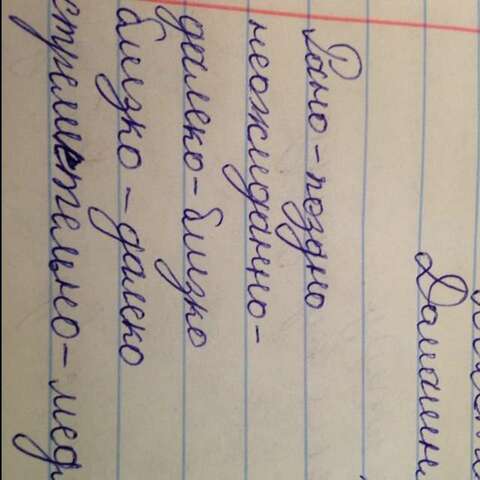 Рано-поздно
неожиданно-
далеко-близко
близко-далеко
стремительно-мед